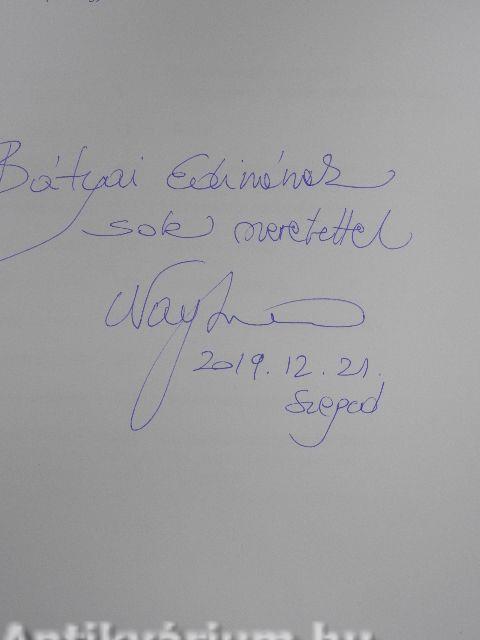 Bátyai Edinának
sok szeretettel
Nagy
2019. 12. 21.
Szeged
Antikvárium.hu